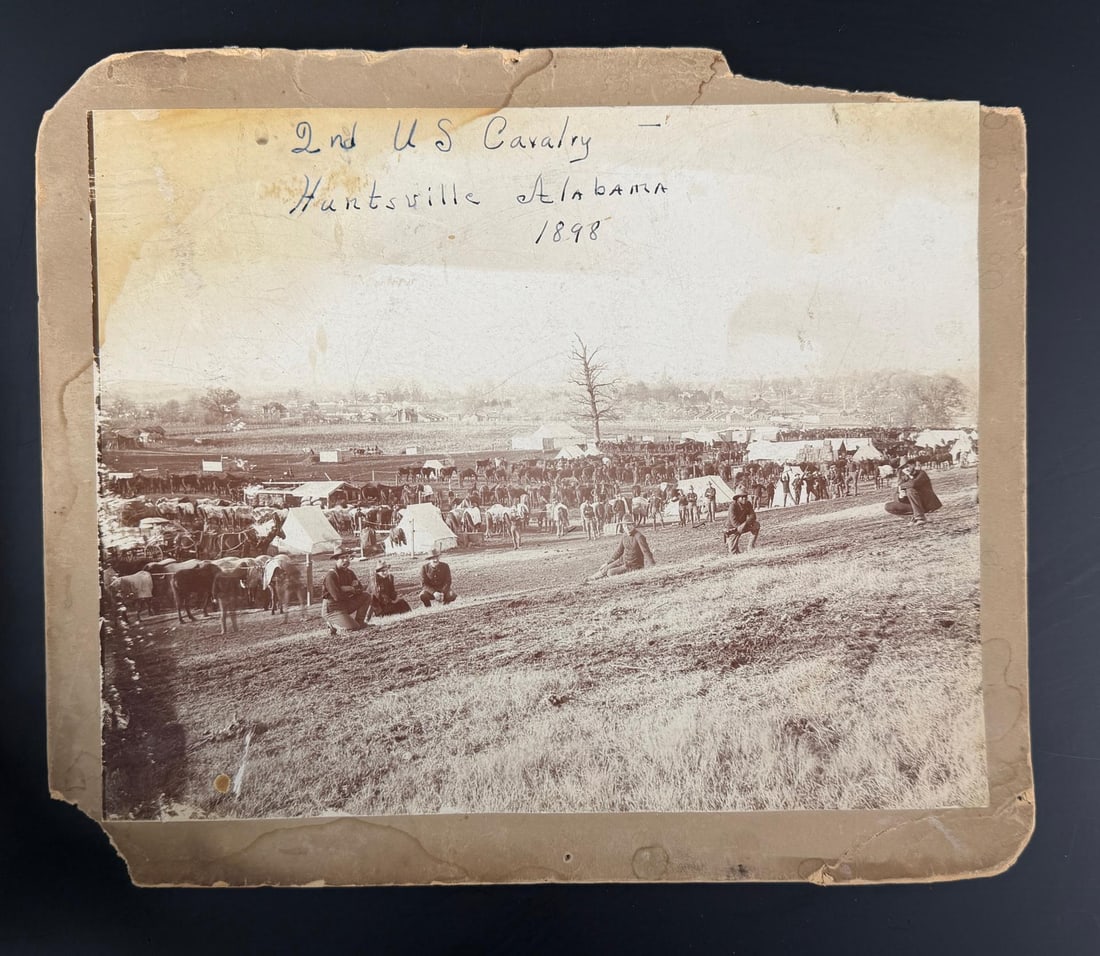 2nd U S Cavalry –
Huntsville Alabama
1898